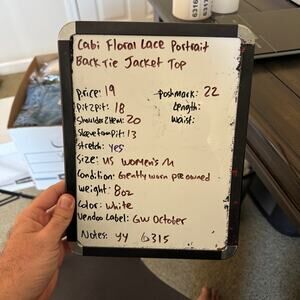 Cabi Floral Lace Portrait
Back Tie Jacket Top
price: 19
poshmark: 22
pit2pit: 18
Length:
Shoulder2Hem: 20
waist:
Sleevefrompit: 13
stretch: yes
Size: US Women's M
Condition: Gently worn preowned
weight: 8oz
Color: White
Vendoo Label: GW October
Notes: yy 6315